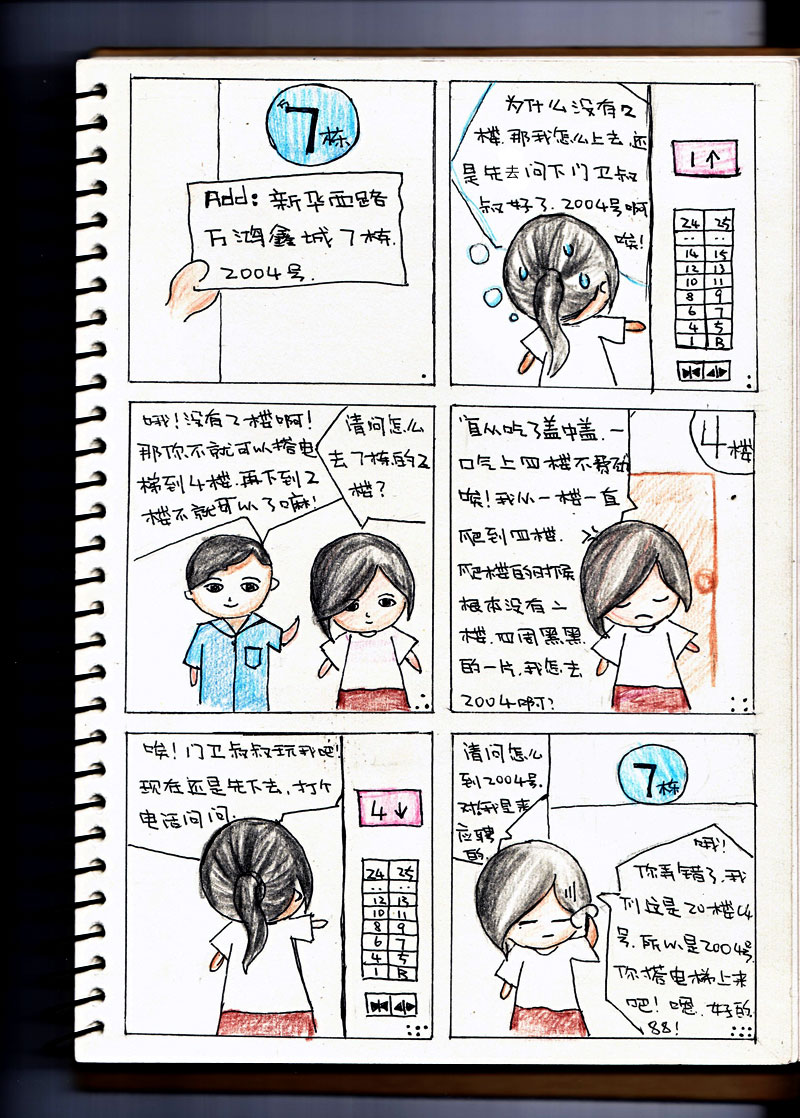 7栋
Add: 新华西路
万鸿鑫城7栋.
2004号.
为什么没有2
楼.那我怎么上去.还
是先去问下门卫叔
叔好了.2004号啊
唉!
1↑
24 25
.. ..
14 15
12 13
10 11
8 9
6 7
4 5
1 B
哦!没有2楼啊!
那你不就可以搭电
梯到4楼.再下到2
楼不就可以了嘛!
请问怎么
去7栋的2
楼?
自从吃了盖中盖.一
口气上四楼不费劲
唉!我从一楼一直
爬到四楼.
爬楼的时候
根本没有二
楼.四周黑黑
的一片.我怎去
2004啊?
4楼
唉!门卫叔叔玩我吧!
现在还是先下去.打个
电话问问.
4↓
24 25
.. ..
12 13
10 11
8 9
6 7
4 5
1 B
请问怎么
到2004号.
对.我是来
应聘
的.
7栋
哦!
你弄错了.我
们这是20楼4
号.所以是2004号
你搭电梯上来
吧!嗯..好的
88!